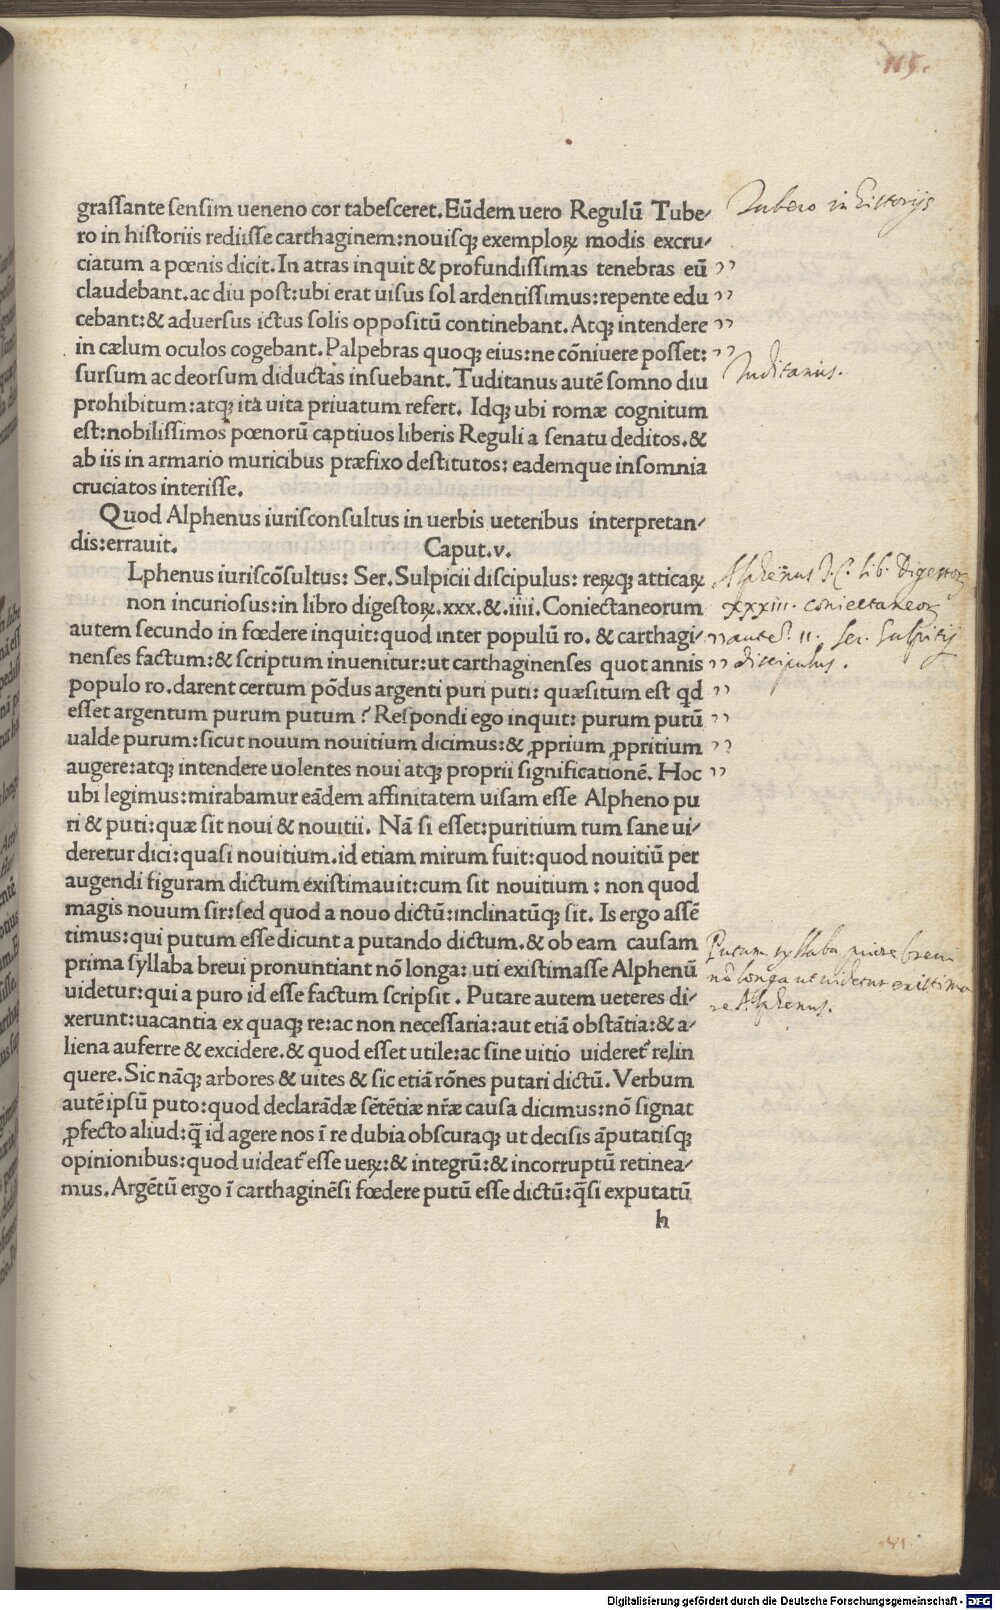 115.
graſſante ſenſim ueneno cor tabeſceret. Eūdem uero Regulū Tube⸗
ro in hiſtoriis rediiſſe carthaginem: nouiſqꝫ exemploꝝ modis excru⸗
ciatum a pœnis dicit. In atras inquit & profundiſſimas tenebras eū
claudebant. ac diu poſt: ubi erat uiſus ſol ardentiſſimus: repente edu
cebant: & aduerſus ictus ſolis oppoſitū continebant. Atqꝫ intendere
in cælum oculos cogebant. Palpebras quoqꝫ eius: ne cōniuere poſſet:
ſurſum ac deorſum diductas inſuebant. Tuditanus autē ſomno diu
prohibitum: atqꝫ ita uita priuatum refert. Idqꝫ ubi romæ cognitum
eſt: nobiliſſimos pœnorū captiuos liberis Reguli a ſenatu deditos. &
ab iis in armario muricibus præfixo deſtitutos: eademque inſomnia
cruciatos interiſſe.
Quod Alphenus iuriſconſultus in uerbis ueteribus interpretan⸗
dis: errauit. Caput. v.
Lphenus iuriſcōſultus: Ser. Sulpicii diſcipulus: reꝝqꝫ atticaꝝ
non incurioſus: in libro digeſtoꝝ. xxx. &. iiii. Coniectaneorum
autem ſecundo in fœdere inquit: quod inter populū ro. & carthagi⸗
nenſes factum: & ſcriptum inuenitur: ut carthaginenſes quot annis
populo ro. darent certum pōdus argenti puri puti: quæſitum eſt qd
eſſet argentum purum putum? Reſpondi ego inquit: purum putū
ualde purum: ſicut nouum nouitium dicimus: & ꝓprium ꝓpritium
augere: atqꝫ intendere uolentes noui atqꝫ proprii ſignificationē. Hoc
ubi legimus: mirabamur eādem affinitatem uiſam eſſe Alpheno pu
ri & puti: quæ ſit noui & nouitii. Nā ſi eſſet: puritium tum ſane ui⸗
deretur dici: quaſi nouitium. id etiam mirum fuit: quod nouitiū per
augendi figuram dictum exiſtimauit: cum ſit nouitium: non quod
magis nouum ſir: ſed quod a nouo dictū: inclinatūqꝫ ſit. Is ergo aſſē
timus: qui putum eſſe dicunt a putando dictum. & ob eam cauſam
prima ſyllaba breui pronuntiant nō longa: uti exiſtimaſſe Alphenū
uidetur: qui a puro id eſſe factum ſcripſit. Putare autem ueteres di⸗
xerunt: uacantia ex quaqꝫ re: ac non neceſſaria: aut etiā obſtātia: & a⸗
liena auferre & excidere. & quod eſſet utile: ac ſine uitio uideret᷑ relin
quere. Sic nāqꝫ arbores & uites & ſic etiā rōnes putari dictū. Verbum
autē ipſū puto: quod declarādæ ſētētiæ nr̄æ cauſa dicimus: nō ſignat
ꝓfecto aliud: q̄ id agere nos ī re dubia obſcuraqꝫ ut deciſis āputatiſqꝫ
opinionibus: quod uideat᷑ eſſe ueꝝ: & integrū: & incorruptū retinea⸗
mus. Argētū ergo ī carthaginēſi fœdere putū eſſe dictū: q̄ſi exputatū
h
Tubero in historijs
Tuditanus.
Alphenus J. C. lib. Digestor
xxxiii. coniectaneor
aute 11. Ser. Sulpitij
discipulus.
Putum syllaba prima breui
nō longa ut uidetur existima
re Alphenus.
Digitalisierung gefördert durch die Deutsche Forschungsgemeinschaft - DFG